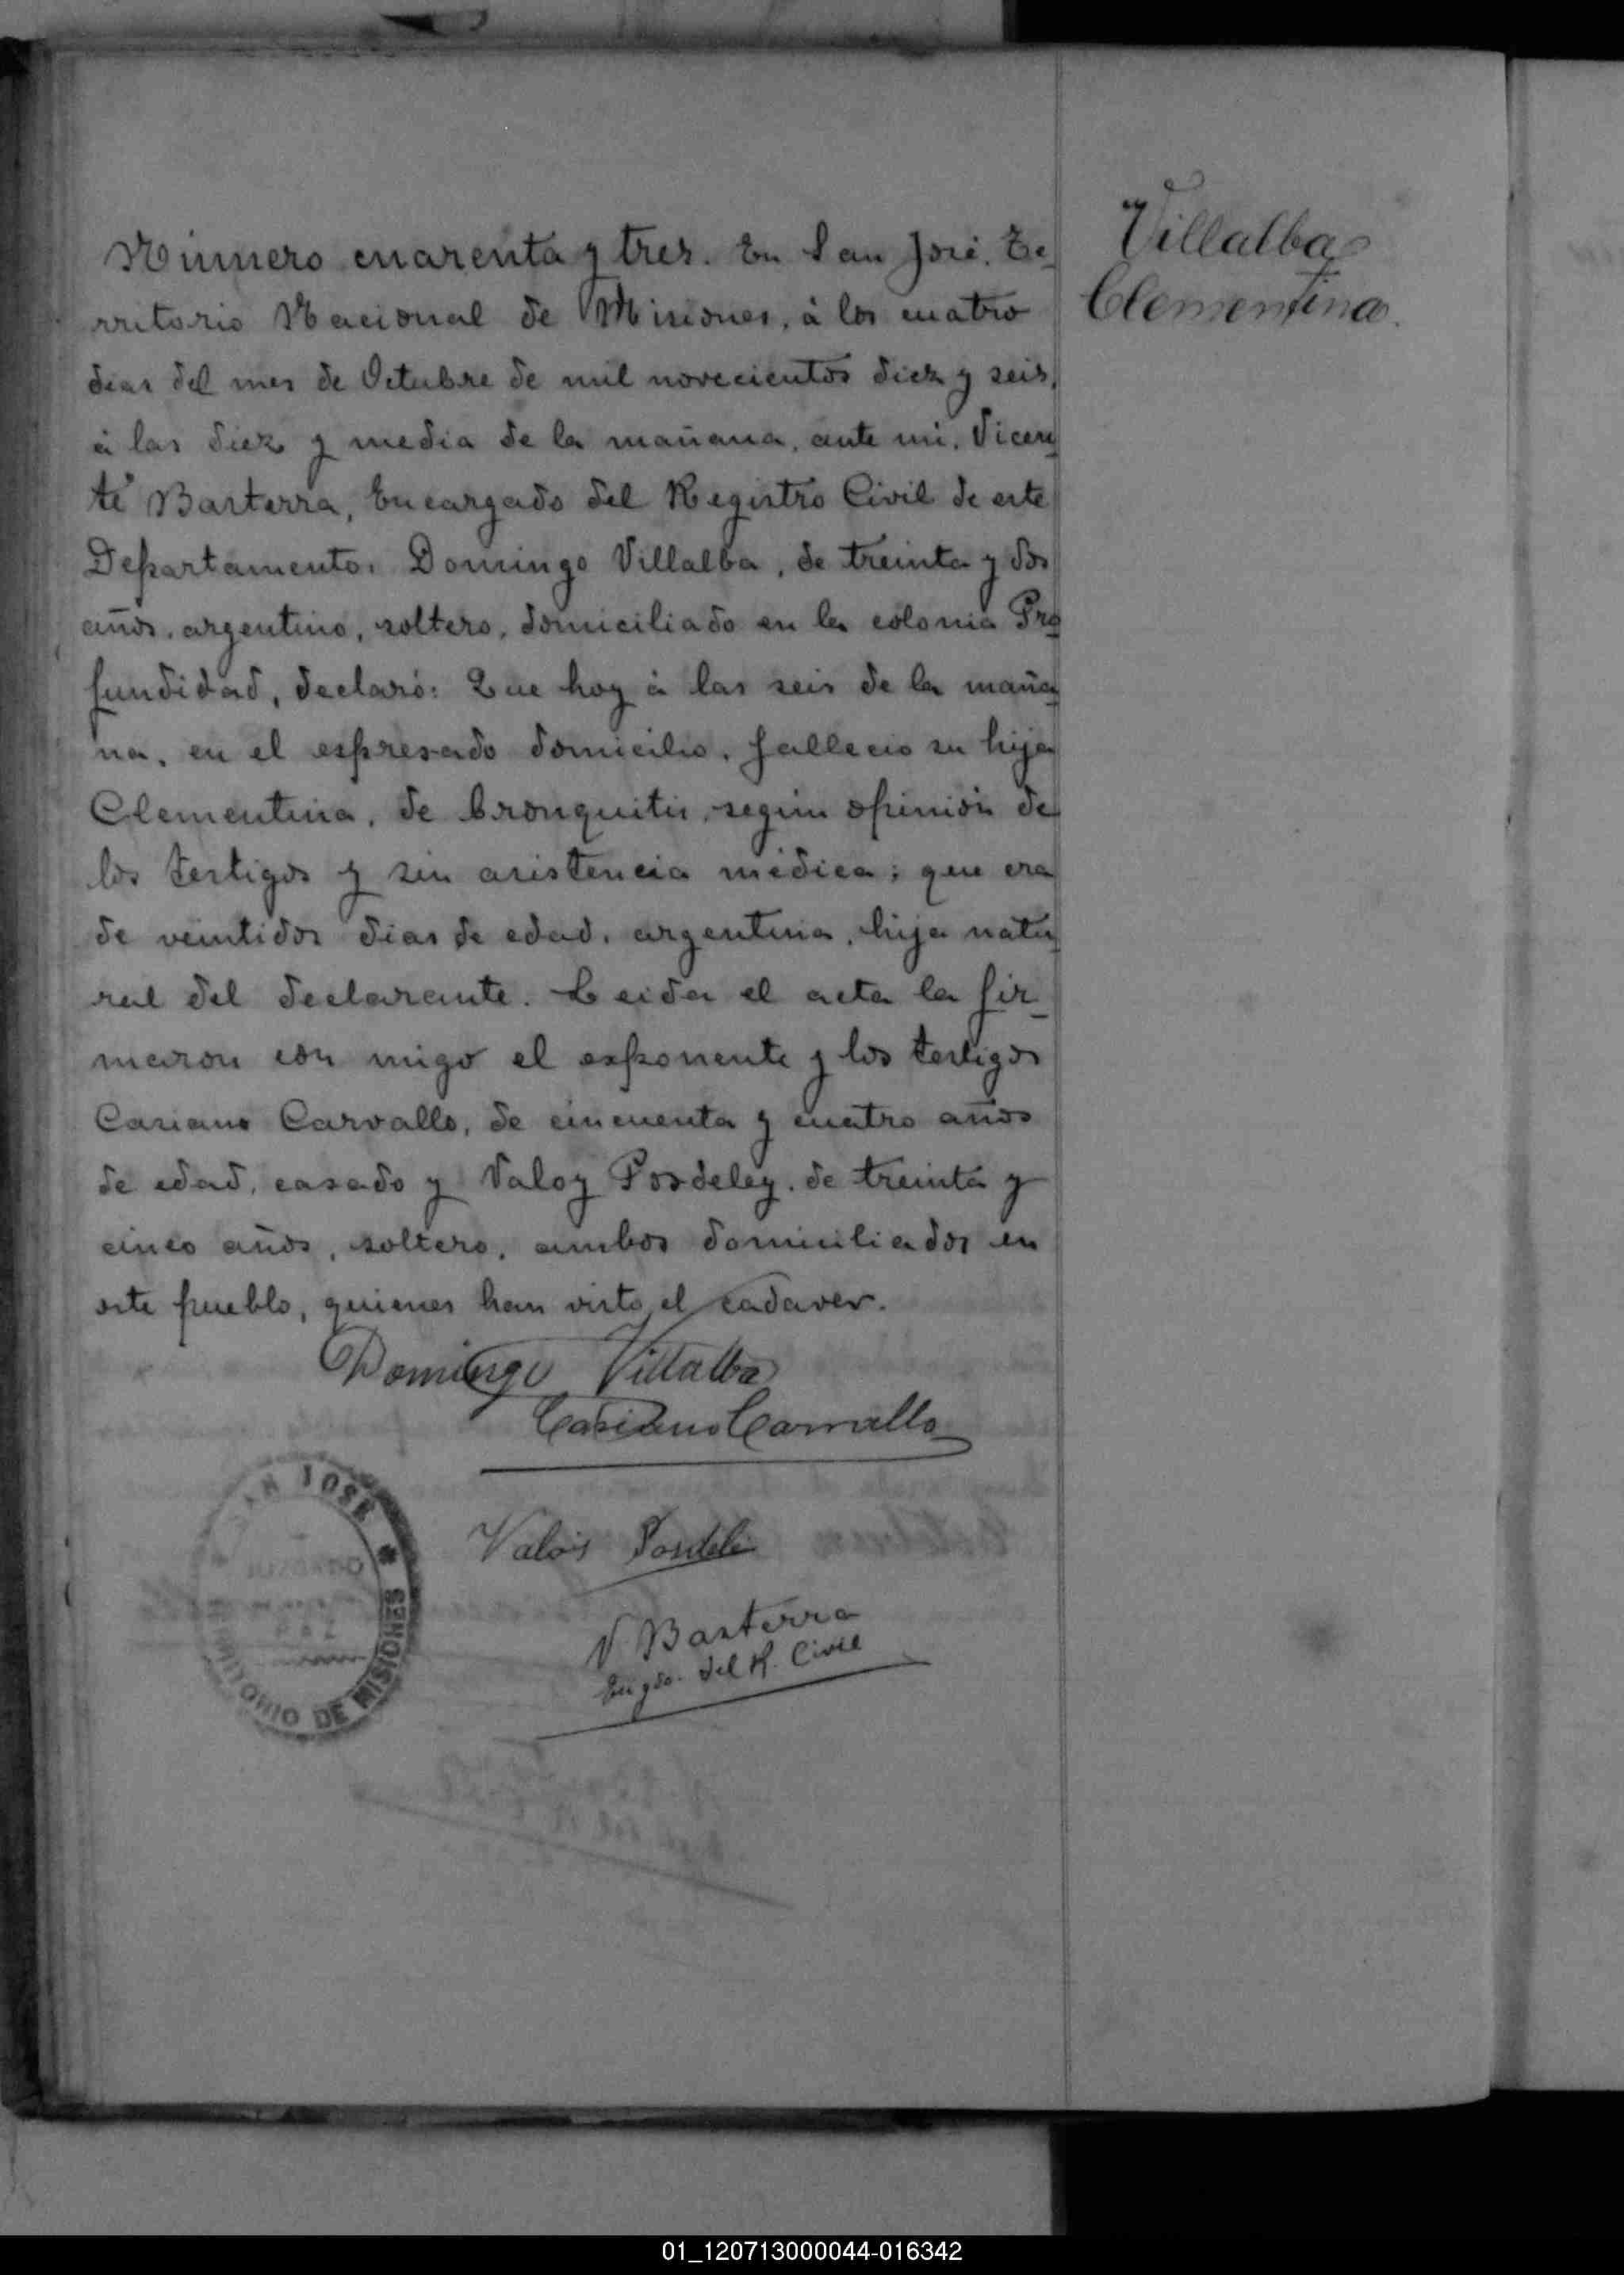 Número cuarenta y tres. En San José, Te-
rritorio Nacional de Misiones, à los cuatro
dias del mes de Octubre de mil novecientos diez y seis,
à las diez y media de la mañana, ante mi, Vicen-
te Basterra, Encargado del Registro Civil de este
Departamento, Domingo Villalba, de treinta y dos
años, argentino, soltero, domiciliado en la colonia Pro-
fundidad, declaró: Que hoy à las seis de la maña-
na, en el espresado domicilio, fallecio su hija
Clementina, de bronquitis, según opinión de
los testigos y sin asistencia mèdica; que era
de veintidos dias de edad, argentina, hija natu-
ral del declarante. Leida el acta la fir-
maron con migo el exponente y los testigos
Casiano Carvallo, de cincuenta y cuatro años
de edad, casado y Valoy Posdeley, de treinta y
cinco años, soltero, ambos domiciliados en
este pueblo, quienes han visto el cadaver.
Domingo Villalba
Casiano Carvallo
Valois Posdeli
V Basterra
Engdo. del R. Civil
Villalba
Clementina.
SAN JOSE * TERRITORIO DE MISIONES
01_120713000044-016342